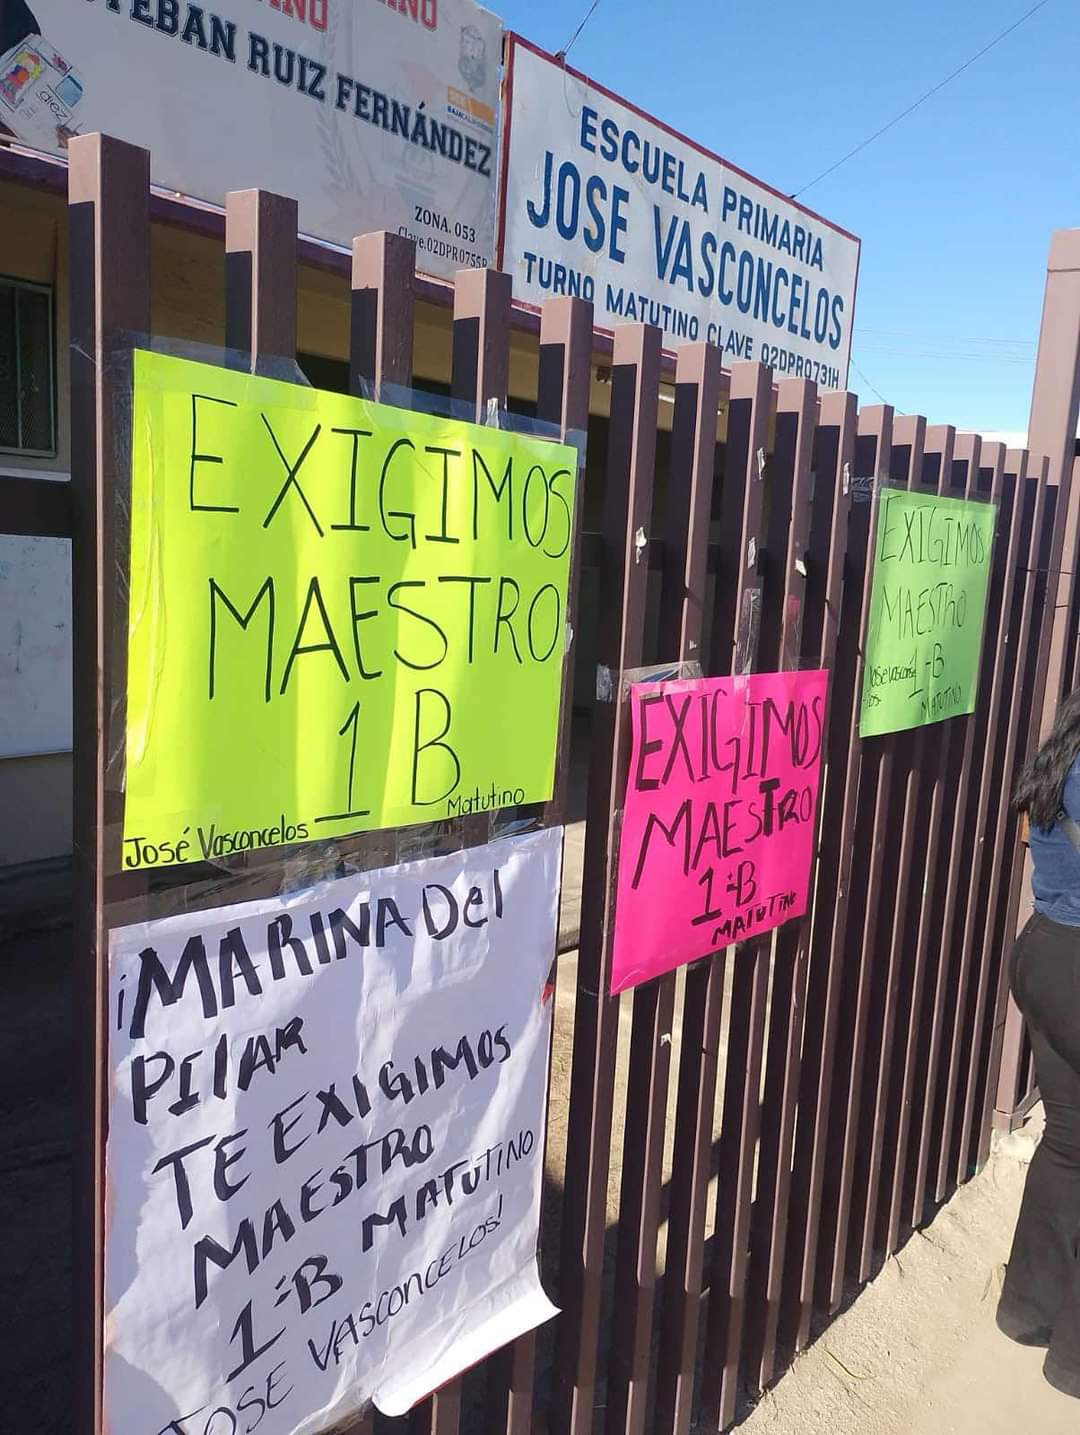 ESTEBAN RUIZ FERNÁNDEZ
ZONA. 053
Clave.02DPR0755
ESCUELA PRIMARIA
JOSE VASCONCELOS
TURNO MATUTINO CLAVE 02DPR0731H
EXIGIMOS
MAESTRO
1 B
José Vasconcelos
Matutino
¡MARINA Del
PilAR
TE EXIGIMOS
MAESTRO
1=B MATUTINO
JOSE VASCONCELOS!
EXIGIMOS
MAESTRO
1=B
MATUTINO
EXIGIMOS
MAESTRO
1-B
MATUTINO